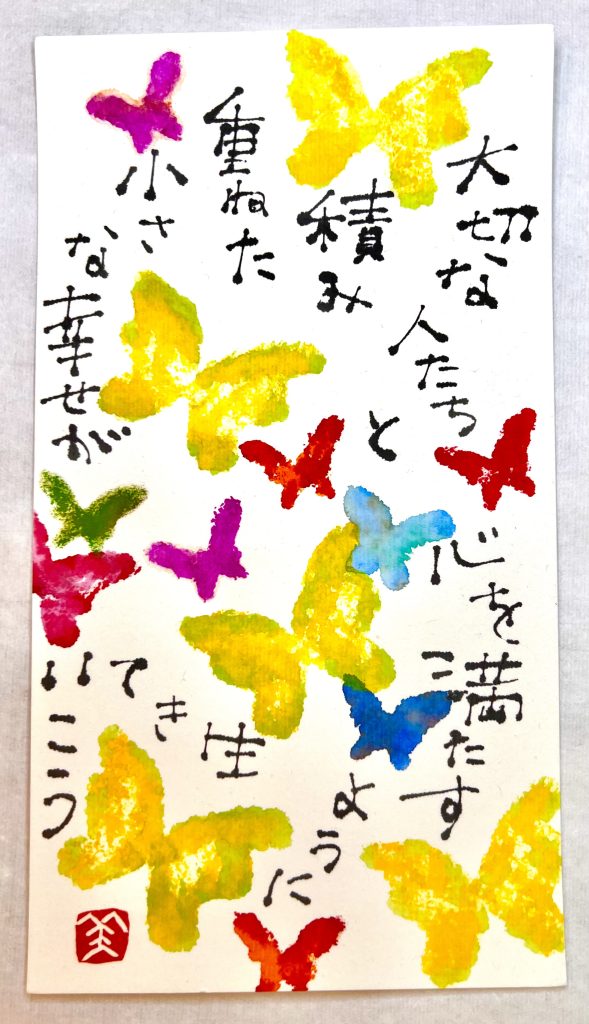 大切な
人たち
と
積み
重ねた
小さ
な幸せが
心を
満たす
ように
生きて
いこう